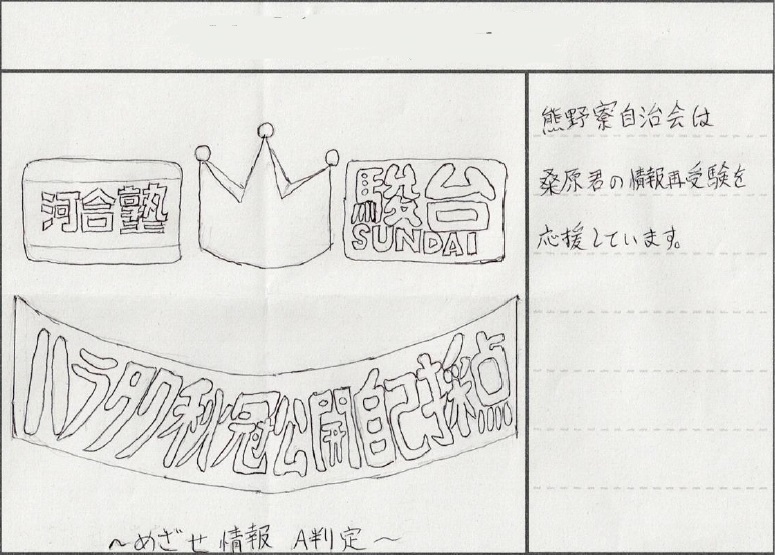 河合塾
駿台
SUNDAI
ハラタク秋冠公開自己採点
～めざせ 情報 A判定～
熊野寮自治会は
桑原君の情報再受験を
応援しています。